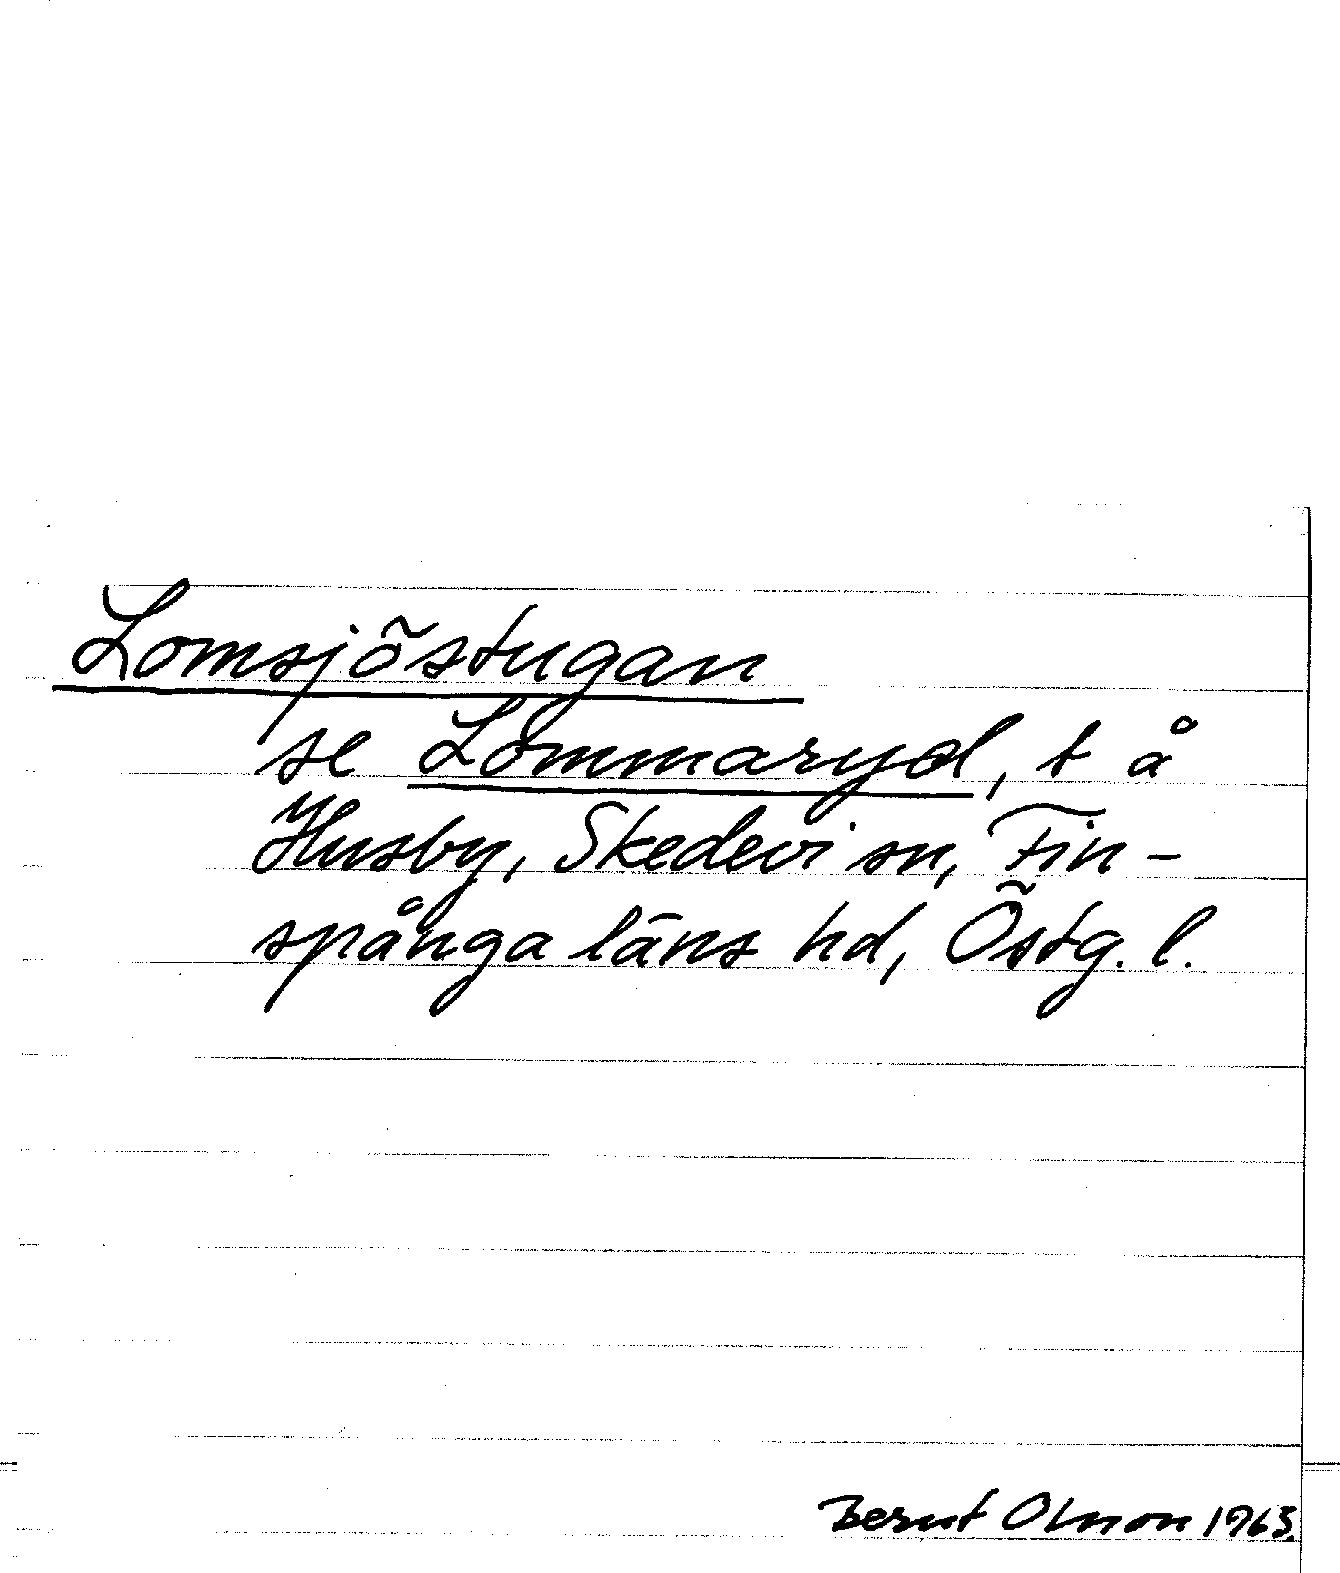 Lomsjöstugan
se Lommaryd, t å
Husby, Skedevi sn, Fin-
spånga läns hd, Östg. l.
Bernt Olsson 1963.